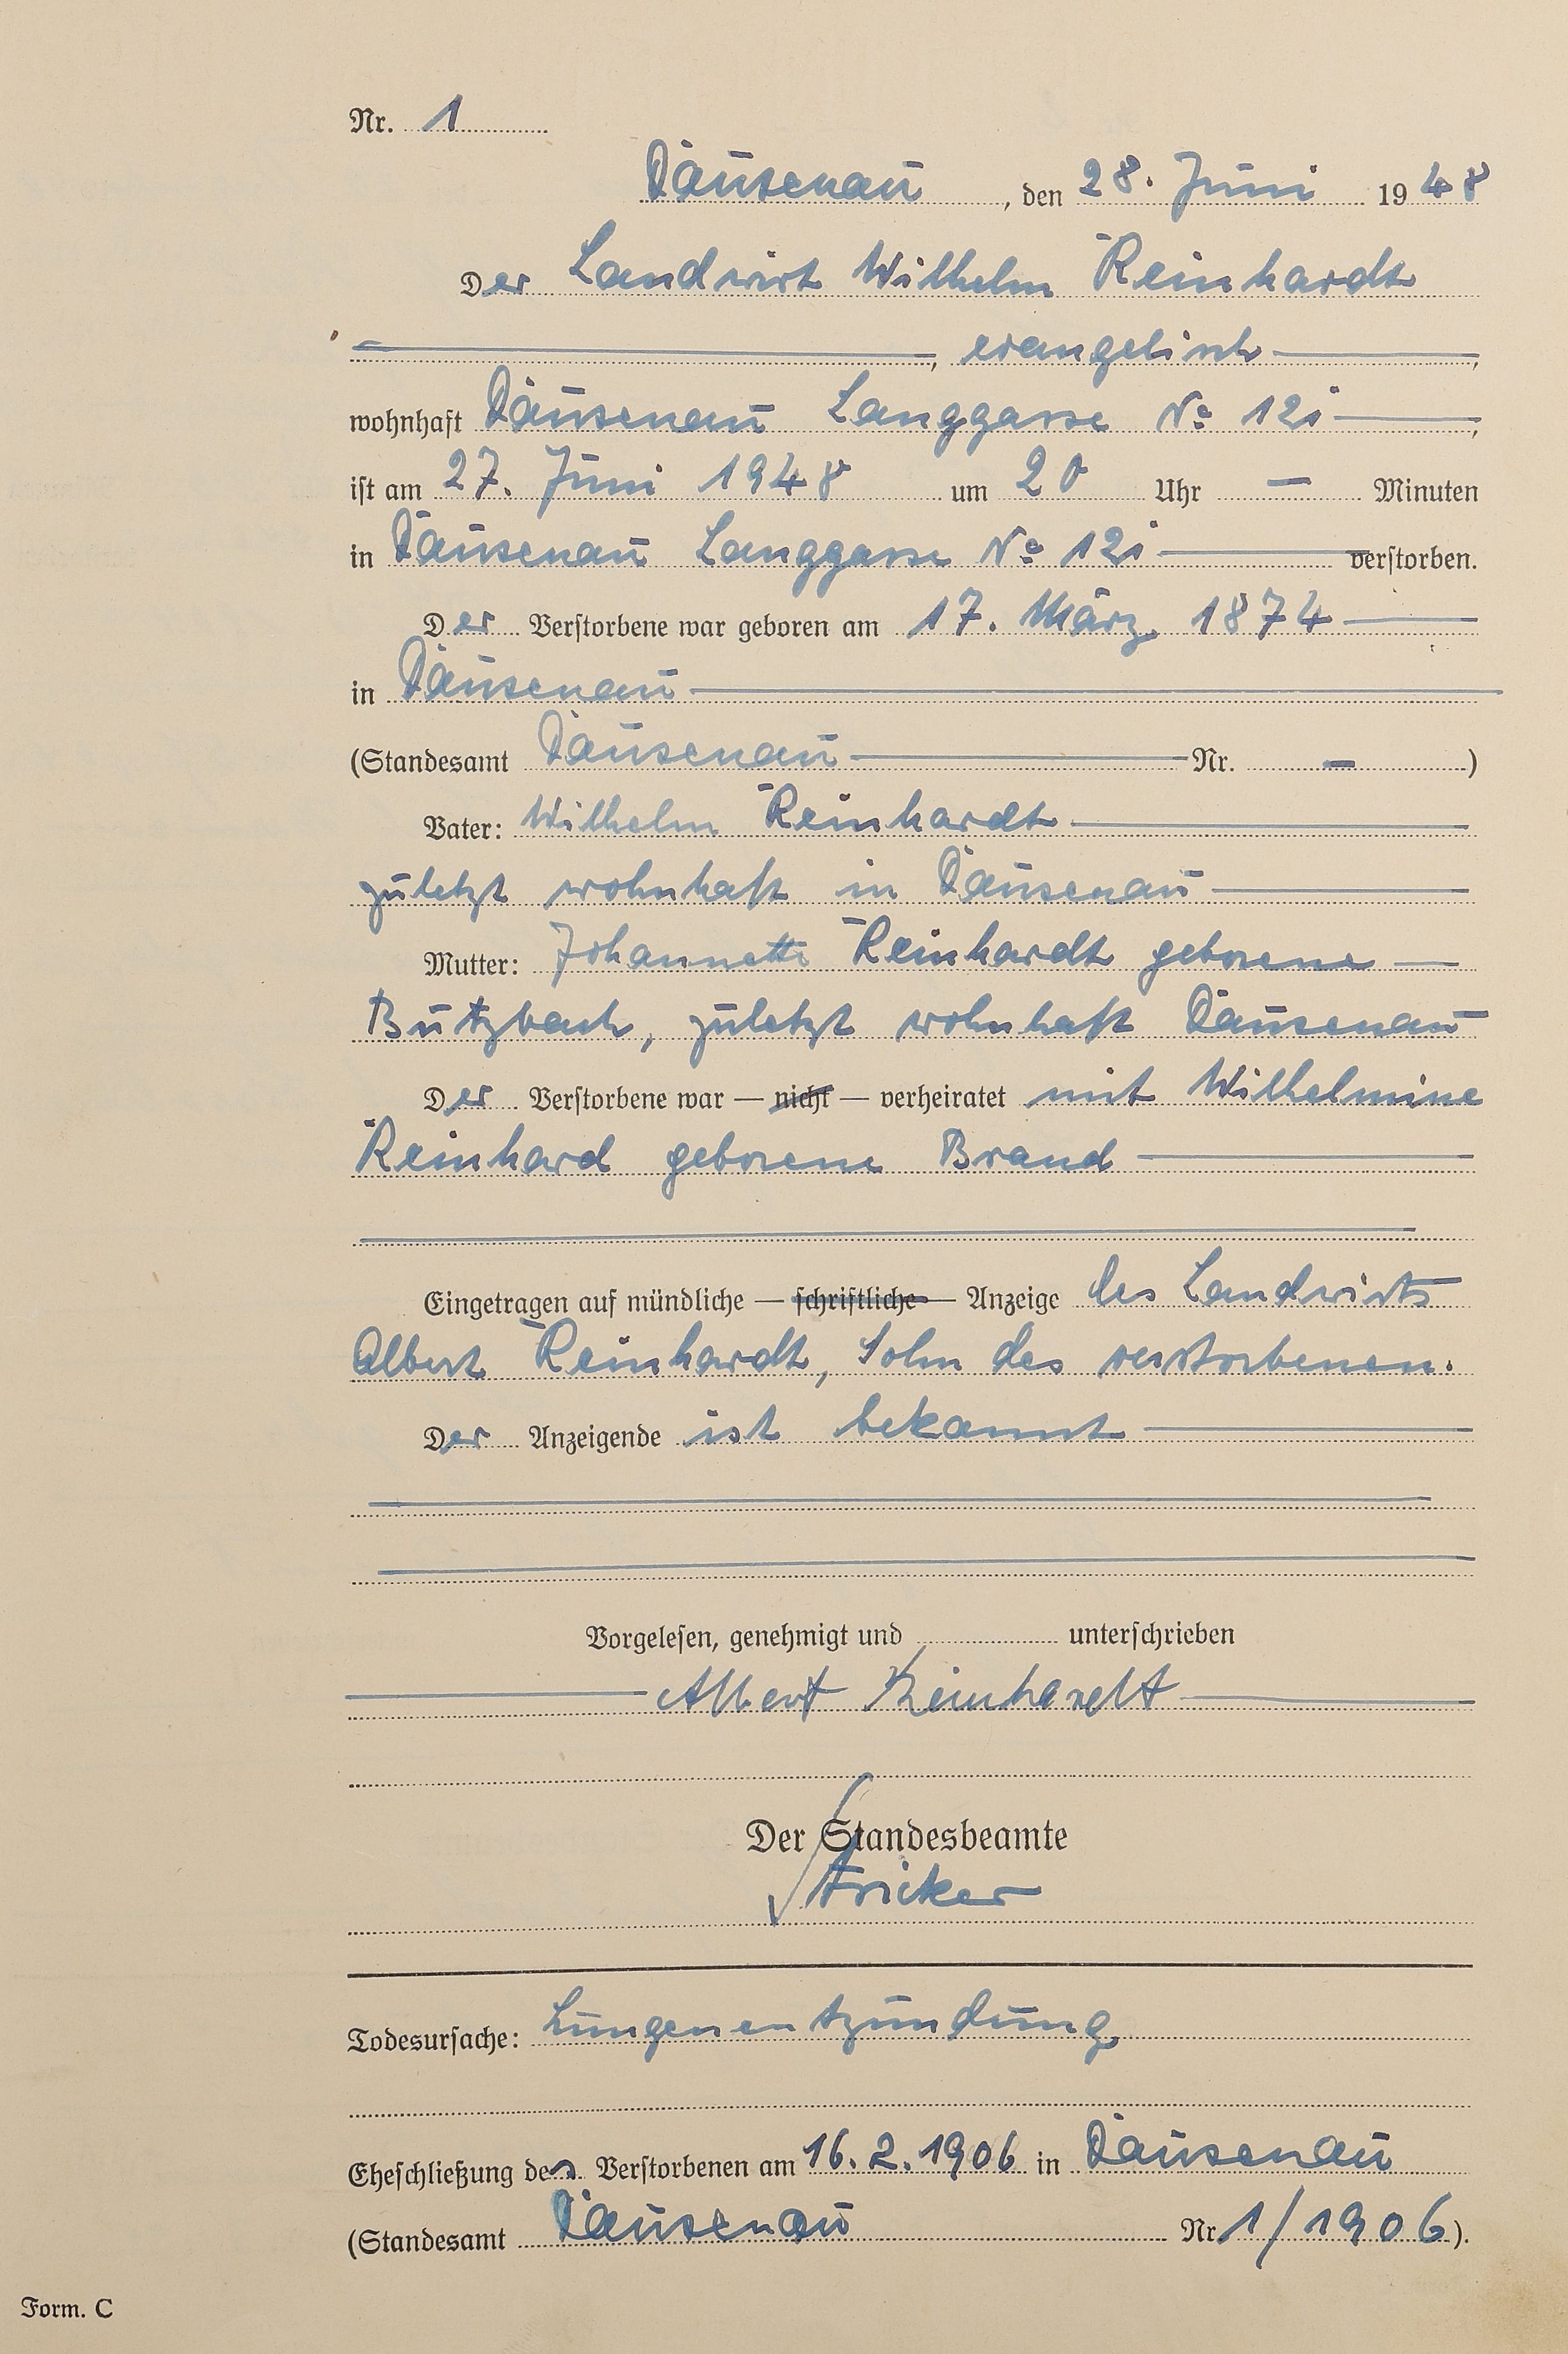 Nr. 1
Dausenau, den 28. Juni 1948
Der Landwirt Wilhelm Reinhardt
—, evangelisch —,
wohnhaft Dausenau Langgasse No 12i —,
ist am 27. Juni 1948 um 20 Uhr — Minuten
in Dausenau Langgasse No 12i — verstorben.
Der Verstorbene war geboren am 17. März 1874 —
in Dausenau —
(Standesamt Dausenau — Nr. — )
Vater: Wilhelm Reinhardt —
zuletzt wohnhaft in Dausenau —
Mutter: Johannette Reinhardt geborene —
Butzbach, zuletzt wohnhaft Dausenau
Der Verstorbene war — nicht — verheiratet mit Wilhelmine
Reinhard geborene Brand —
Eingetragen auf mündliche — schriftliche — Anzeige des Landwirts
Albert Reinhardt, Sohn des verstorbenen.
Der Anzeigende ist bekannt —
Vorgelesen, genehmigt und unterschrieben
Albert Reinhardt
Der Standesbeamte
Stricker
Todesursache: Lungenentzündung
Eheschließung des Verstorbenen am 16.2.1906 in Dausenau
(Standesamt Dausenau Nr. 1/1906).
Form. C